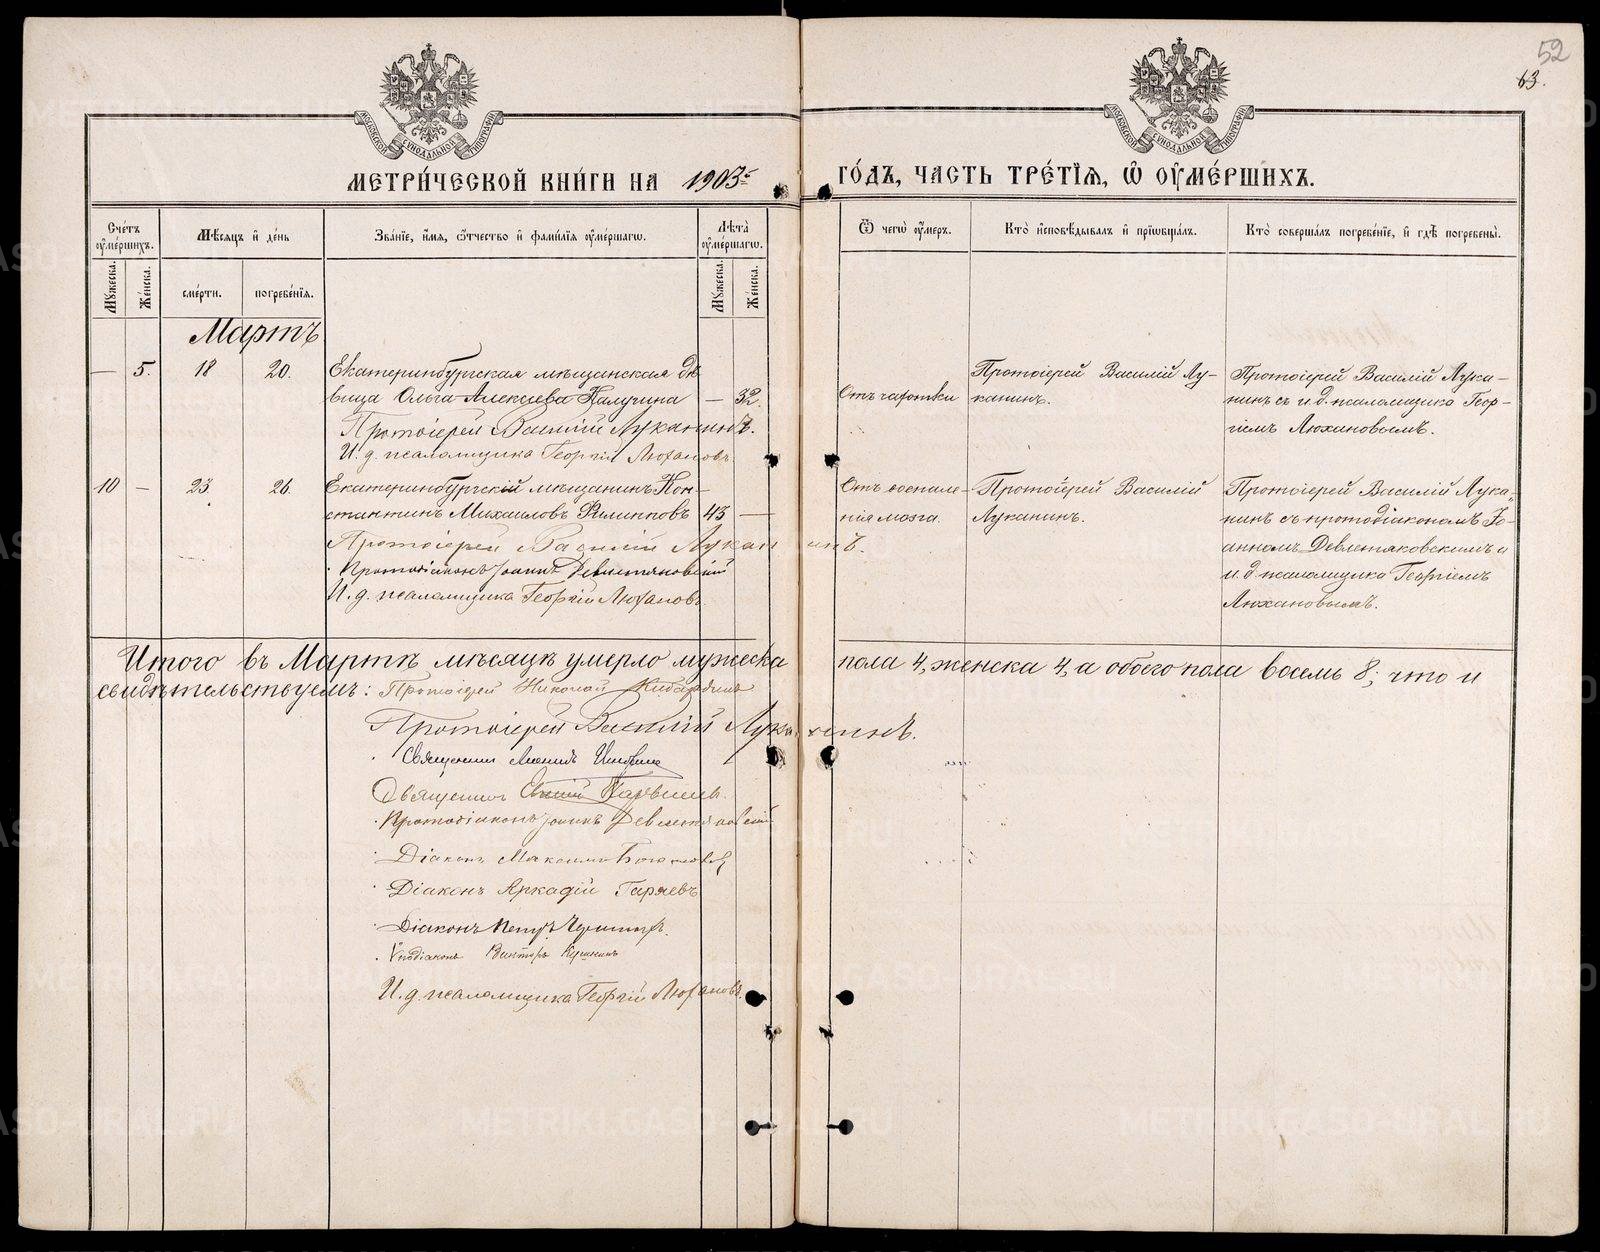 52
63.
МОСКОВСКОЙ СУНОДАЛЬНОЙ ТУПОГРАФІИ
МОСКОВСКОЙ СУНОДАЛЬНОЙ ТУПОГРАФІИ
МЕТРИ́ЧЕСКОЙ КНИ́ГИ НА 1903й ГО́ДЪ, ЧАСТЬ ТРЕ́ТІѦ, Ѽ ОУМЕ́РШИХЪ.
Сче́тъ оуме́ршихъ.
Мѣ́сяцъ и де́нь
Зва́ніе, и́мя, ѻ҆́тчество и фами́лія оуме́ршагѡ.
Лѣ́та оуме́ршагѡ.
Ѿ чегѡ̀ оу́меръ.
Кто̀ и҆сповѣ́дывалъ и прїѡбща́лъ.
Кто̀ соверша́лъ погребе́ніе, и гдѣ̀ погребены̀.
Му́жеска.
Же́нска.
сме́рти.
погребе́нія.
Му́жеска.
Же́нска.
Мартъ
— 5. 18 20. Екатеринбургская мѣщанская дѣ-
вица Ольга Алексѣева Калугина — 32.
Протоіерей Василій Луканинъ.
И. д. псаломщика Георгій Люхановъ.
Отъ чахотки
Протоіерей Василій Лу-
канинъ.
Протоіерей Василій Лука-
нинъ съ и. д. псаломщика Геор-
гіемъ Люхановымъ.
10 — 23. 26. Екатеринбургскій мѣщанинъ Кон-
стантинъ Михаиловъ Филипповъ 43 —
Протоіерей Василій Луканинъ.
Протодіаконъ Іоаннъ Девлетяковскій
И. д. псаломщика Георгій Люхановъ.
Отъ воспале-
нія мозга.
Протоіерей Василій
Луканинъ.
Протоіерей Василій Лука-
нинъ съ протодіакономъ Іо-
анномъ Девлетяковскимъ и
и. д. псаломщика Георгіемъ
Люхановымъ.
Итого въ Мартѣ мѣсяцѣ умерло мужеска пола 4, женска 4, а обоего пола восемь 8; что и
свидѣтельствуемъ: Протоіерей Николай
Протоіерей Василій Луканинъ.
Священникъ
Священникъ
Протодіаконъ Іоаннъ Девлетяковскій
Діаконъ Максимъ
Діаконъ Аркадій Гаряевъ
Діаконъ Петръ
Vподіаконъ Викторъ
И. д. псаломщика Георгій Люхановъ.
METRIKI.GASO-URAL.RU